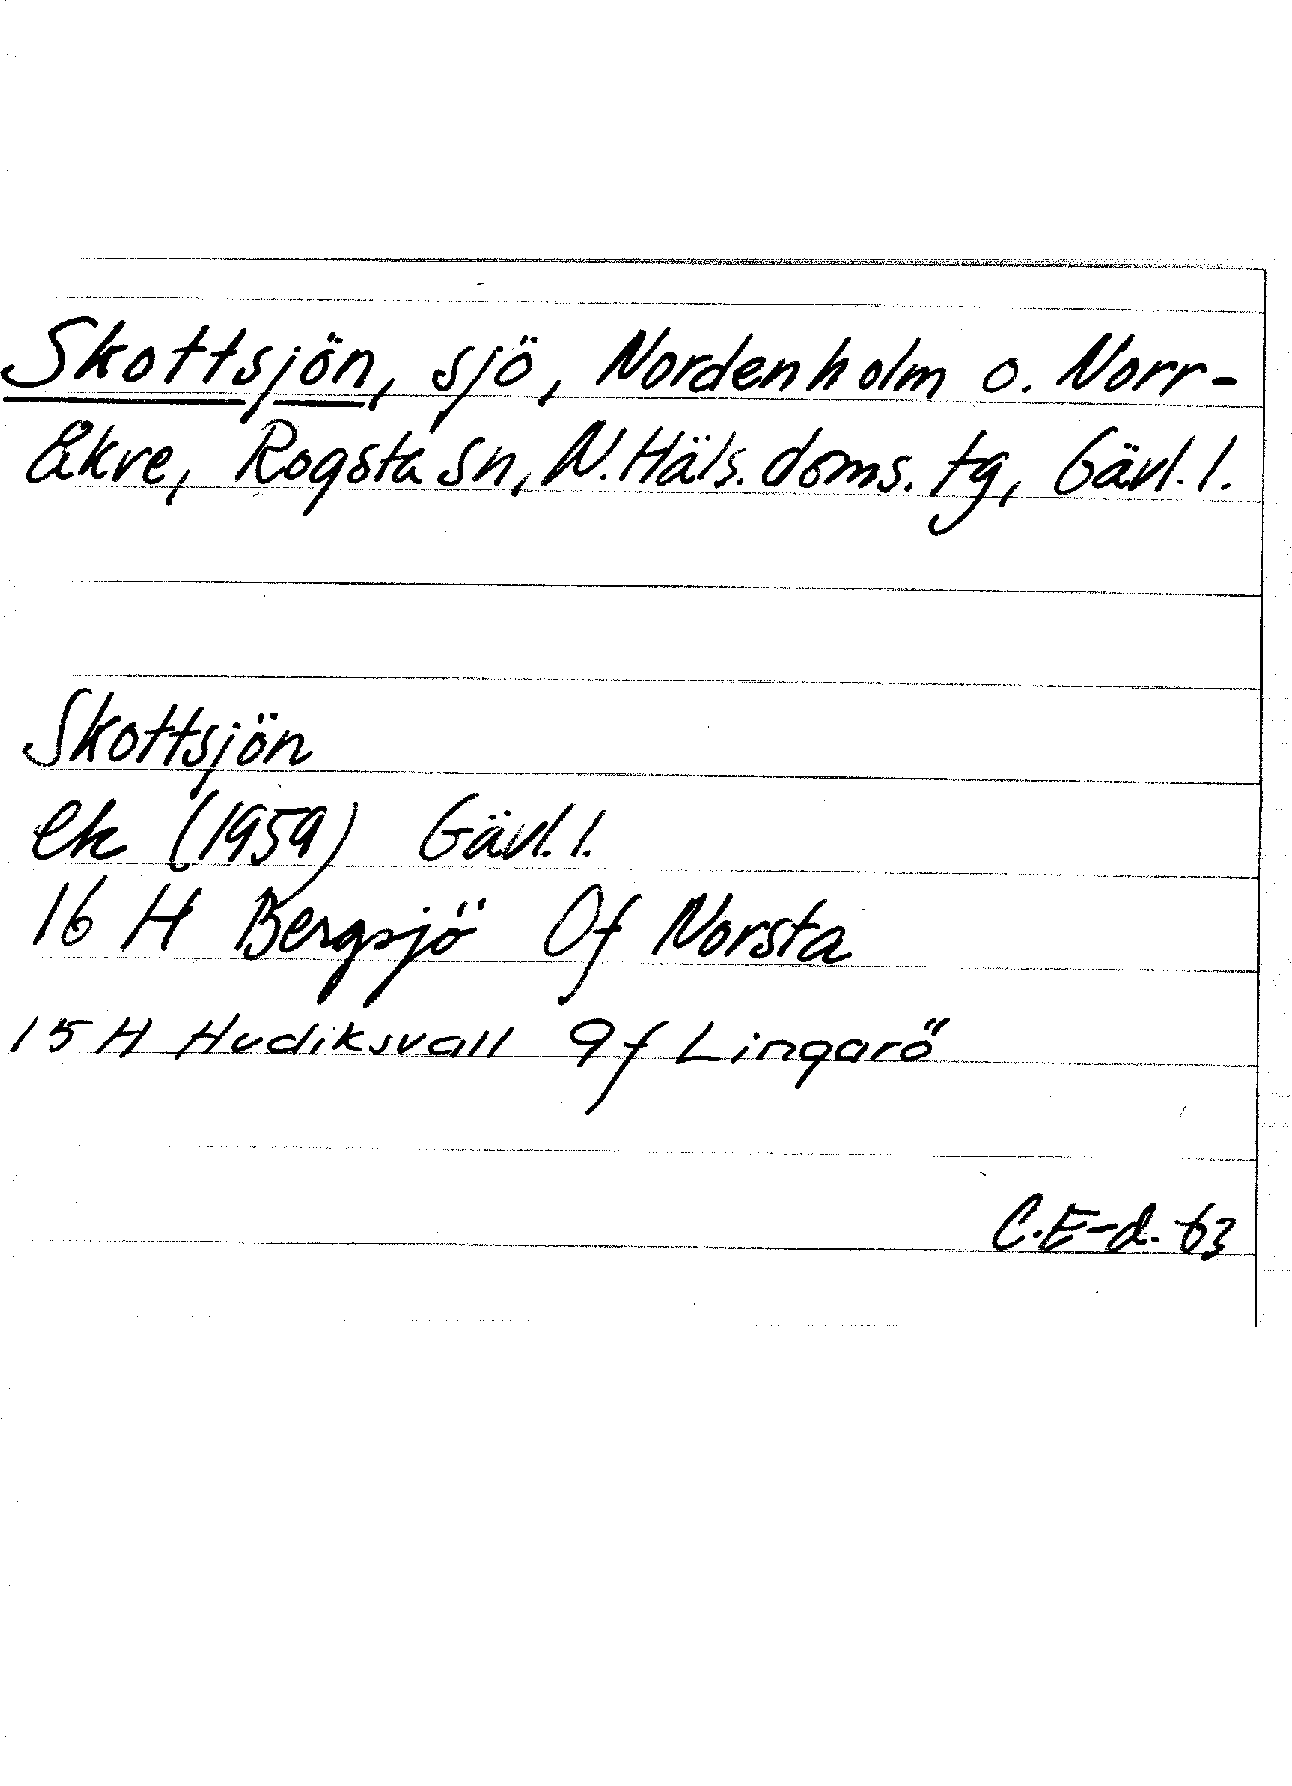 Skottsjön, sjö, Nordenholm o. Norr-
åkre, Rogsta sn, N. Häls. doms. tg, Gävl. l.
Skottsjön
ek (1959) Gävl. l.
16 H Bergsjö 0f Norsta
15 H Hudiksvall 9f Lingarö
C.E-d. 63